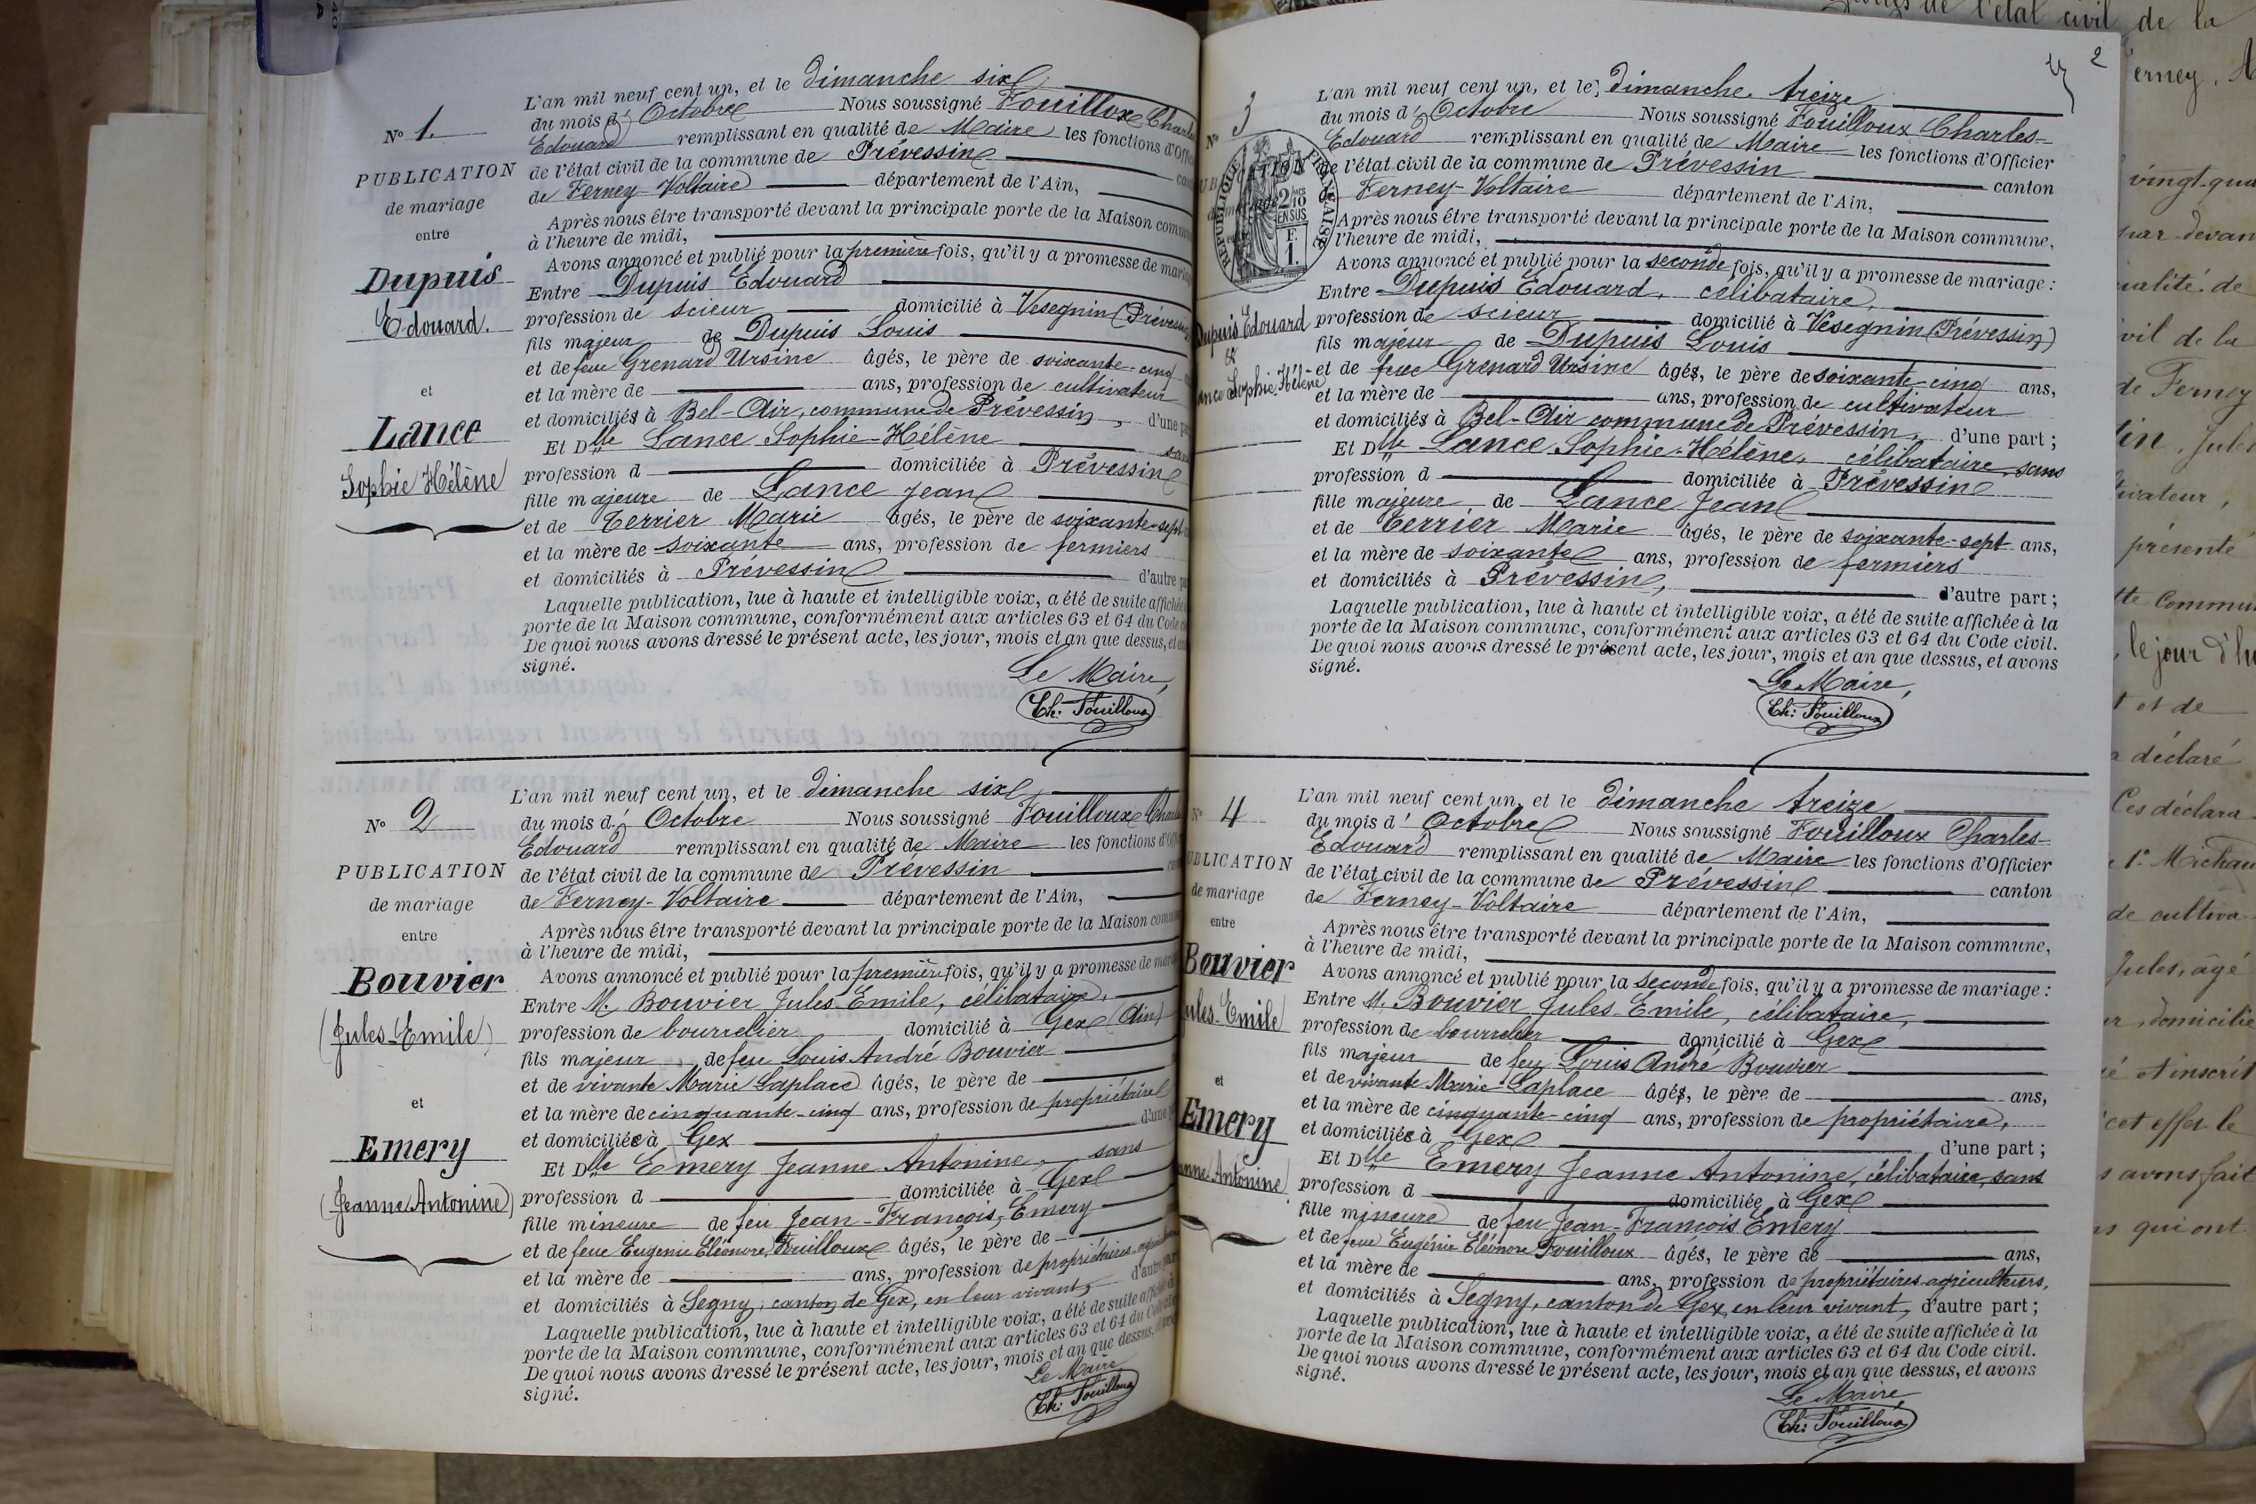 N° 1.
PUBLICATION
de mariage
entre
Dupuis
Edouard.
et
Lance
Sophie Hélène
L'an mil neuf cent un, et le dimanche six
du mois d' Octobre Nous soussigné Fouilloux Charles
Edouard remplissant en qualité de Maire les fonctions d'Offi
de l'état civil de la commune de Prévessin
de Ferney-Voltaire département de l'Ain,
Après nous être transporté devant la principale porte de la Maison commu
à l'heure de midi,
Avons annoncé et publié pour la première fois, qu'il y a promesse de maria
Entre Dupuis Edouard
profession de scieur domicilié à Vesegnin (Préves
fils majeur de Dupuis Louis
et de feue Grenard Ursine âgés, le père de soixante-cinq
et la mère de ans, profession de cultivateur
et domiciliés à Bel-Air, commune de Prévessin, d'une pa
Et Dlle Lance Sophie-Hélène sans
profession d domiciliée à Prévessin
fille majeure de Lance Jean
et de Terrier Marie âgés, le père de soixante-sept
et la mère de soixante ans, profession de fermiers
et domiciliés à Prévessin d'autre pa
Laquelle publication, lue à haute et intelligible voix, a été de suite affichée
porte de la Maison commune, conformément aux articles 63 et 64 du Code c
De quoi nous avons dressé le présent acte, les jour, mois et an que dessus, et
signé.
Le Maire,
Ch: Fouilloux
N° 2
PUBLICATION
de mariage
entre
Bouvier
(Jules Emile)
et
Emery
(Jeanne Antonine)
L'an mil neuf cent un, et le dimanche six
du mois d' Octobre Nous soussigné Fouilloux Charles
Edouard remplissant en qualité de Maire les fonctions d'Off
de l'état civil de la commune de Prévessin
de Ferney-Voltaire département de l'Ain,
Après nous être transporté devant la principale porte de la Maison commu
à l'heure de midi,
Avons annoncé et publié pour la première fois, qu'il y a promesse de mari
Entre M. Bouvier Jules Emile, célibataire,
profession de bourrelier domicilié à Gex (Ain)
fils majeur de feu Louis André Bouvier
et de vivante Marie Laplace âgés, le père de
et la mère de cinquante-cinq ans, profession de propriétaire
et domiciliés à Gex d'une
Et Dlle Emery Jeanne Antonine, sans
profession d domiciliée à Gex
fille mineure de feu Jean-François Emery
et de feue Eugénie Eléonore Fouilloux âgés, le père de
et la mère de ans, profession de propriétaires
et domiciliés à Segny, canton de Gex, en leur vivant, d'autre
Laquelle publication, lue à haute et intelligible voix, a été de suite affichée
porte de la Maison commune, conformément aux articles 63 et 64 du Co
De quoi nous avons dressé le présent acte, les jour, mois et an que dessus,
signé.
Le Maire
Ch: Fouilloux
2
N° 3
RÉPUBLIQUE FRANÇAISE
2/10 EN SUS
F. 1.
Dupuis Edouard
&
Lance Sophie-Hélène
L'an mil neuf cent un, et le dimanche treize
du mois d' Octobre Nous soussigné Fouilloux Charles-
Edouard remplissant en qualité de Maire les fonctions d'Officier
de l'état civil de la commune de Prévessin canton
de Ferney-Voltaire département de l'Ain,
Après nous être transporté devant la principale porte de la Maison commune,
à l'heure de midi,
Avons annoncé et publié pour la seconde fois, qu'il y a promesse de mariage :
Entre Dupuis Edouard, célibataire,
profession de scieur domicilié à Vesegnin (Prévessin)
fils majeur de Dupuis Louis
et de feue Grenard Ursine âgés, le père de soixante-cinq ans,
et la mère de ans, profession de cultivateur
et domiciliés à Bel-Air commune de Prévessin, d'une part ;
Et Dlle Lance Sophie-Hélène, célibataire, sans
profession d domiciliée à Prévessin
fille majeure de Lance Jean
et de Terrier Marie âgés, le père de soixante-sept ans,
et la mère de soixante ans, profession de fermiers
et domiciliés à Prévessin, d'autre part ;
Laquelle publication, lue à haute et intelligible voix, a été de suite affichée à la
porte de la Maison commune, conformément aux articles 63 et 64 du Code civil.
De quoi nous avons dressé le présent acte, les jour, mois et an que dessus, et avons
signé.
Le Maire,
Ch: Fouilloux
N° 4
PUBLICATION
de mariage
entre
Bouvier
Jules-Emile
et
Emery
Jeanne Antonine
L'an mil neuf cent un, et le dimanche treize
du mois d' Octobre Nous soussigné Fouilloux Charles-
Edouard remplissant en qualité de Maire les fonctions d'Officier
de l'état civil de la commune de Prévessin canton
de Ferney-Voltaire département de l'Ain,
Après nous être transporté devant la principale porte de la Maison commune,
à l'heure de midi,
Avons annoncé et publié pour la seconde fois, qu'il y a promesse de mariage :
Entre M. Bouvier Jules-Emile, célibataire,
profession de bourrelier domicilié à Gex
fils majeur de feu Louis André Bouvier
et de vivante Marie Laplace âgés, le père de ans,
et la mère de cinquante-cinq ans, profession de propriétaire,
et domiciliés à Gex d'une part ;
Et Dlle Emery Jeanne Antonine, célibataire, sans
profession d domiciliée à Gex
fille mineure de feu Jean-François Emery
et de feue Eugénie Eléonore Fouilloux âgés, le père de ans,
et la mère de ans, profession de propriétaires-agriculteurs,
et domiciliés à Segny, canton de Gex, en leur vivant, d'autre part ;
Laquelle publication, lue à haute et intelligible voix, a été de suite affichée à la
porte de la Maison commune, conformément aux articles 63 et 64 du Code civil.
De quoi nous avons dressé le présent acte, les jour, mois et an que dessus, et avons
signé.
Le Maire,
Ch: Fouilloux
de l'état civil de la
erney,
vingt-qua
par devan
ualité de
vil de la
de Ferney
tin, Jules
présenté
tte commu
le jour d'hu
et de
a déclaré
Ces déclara
de cultiva
Jules, âgé
domicilié
é et inscrit
cet effet le
avons fait
qui ont